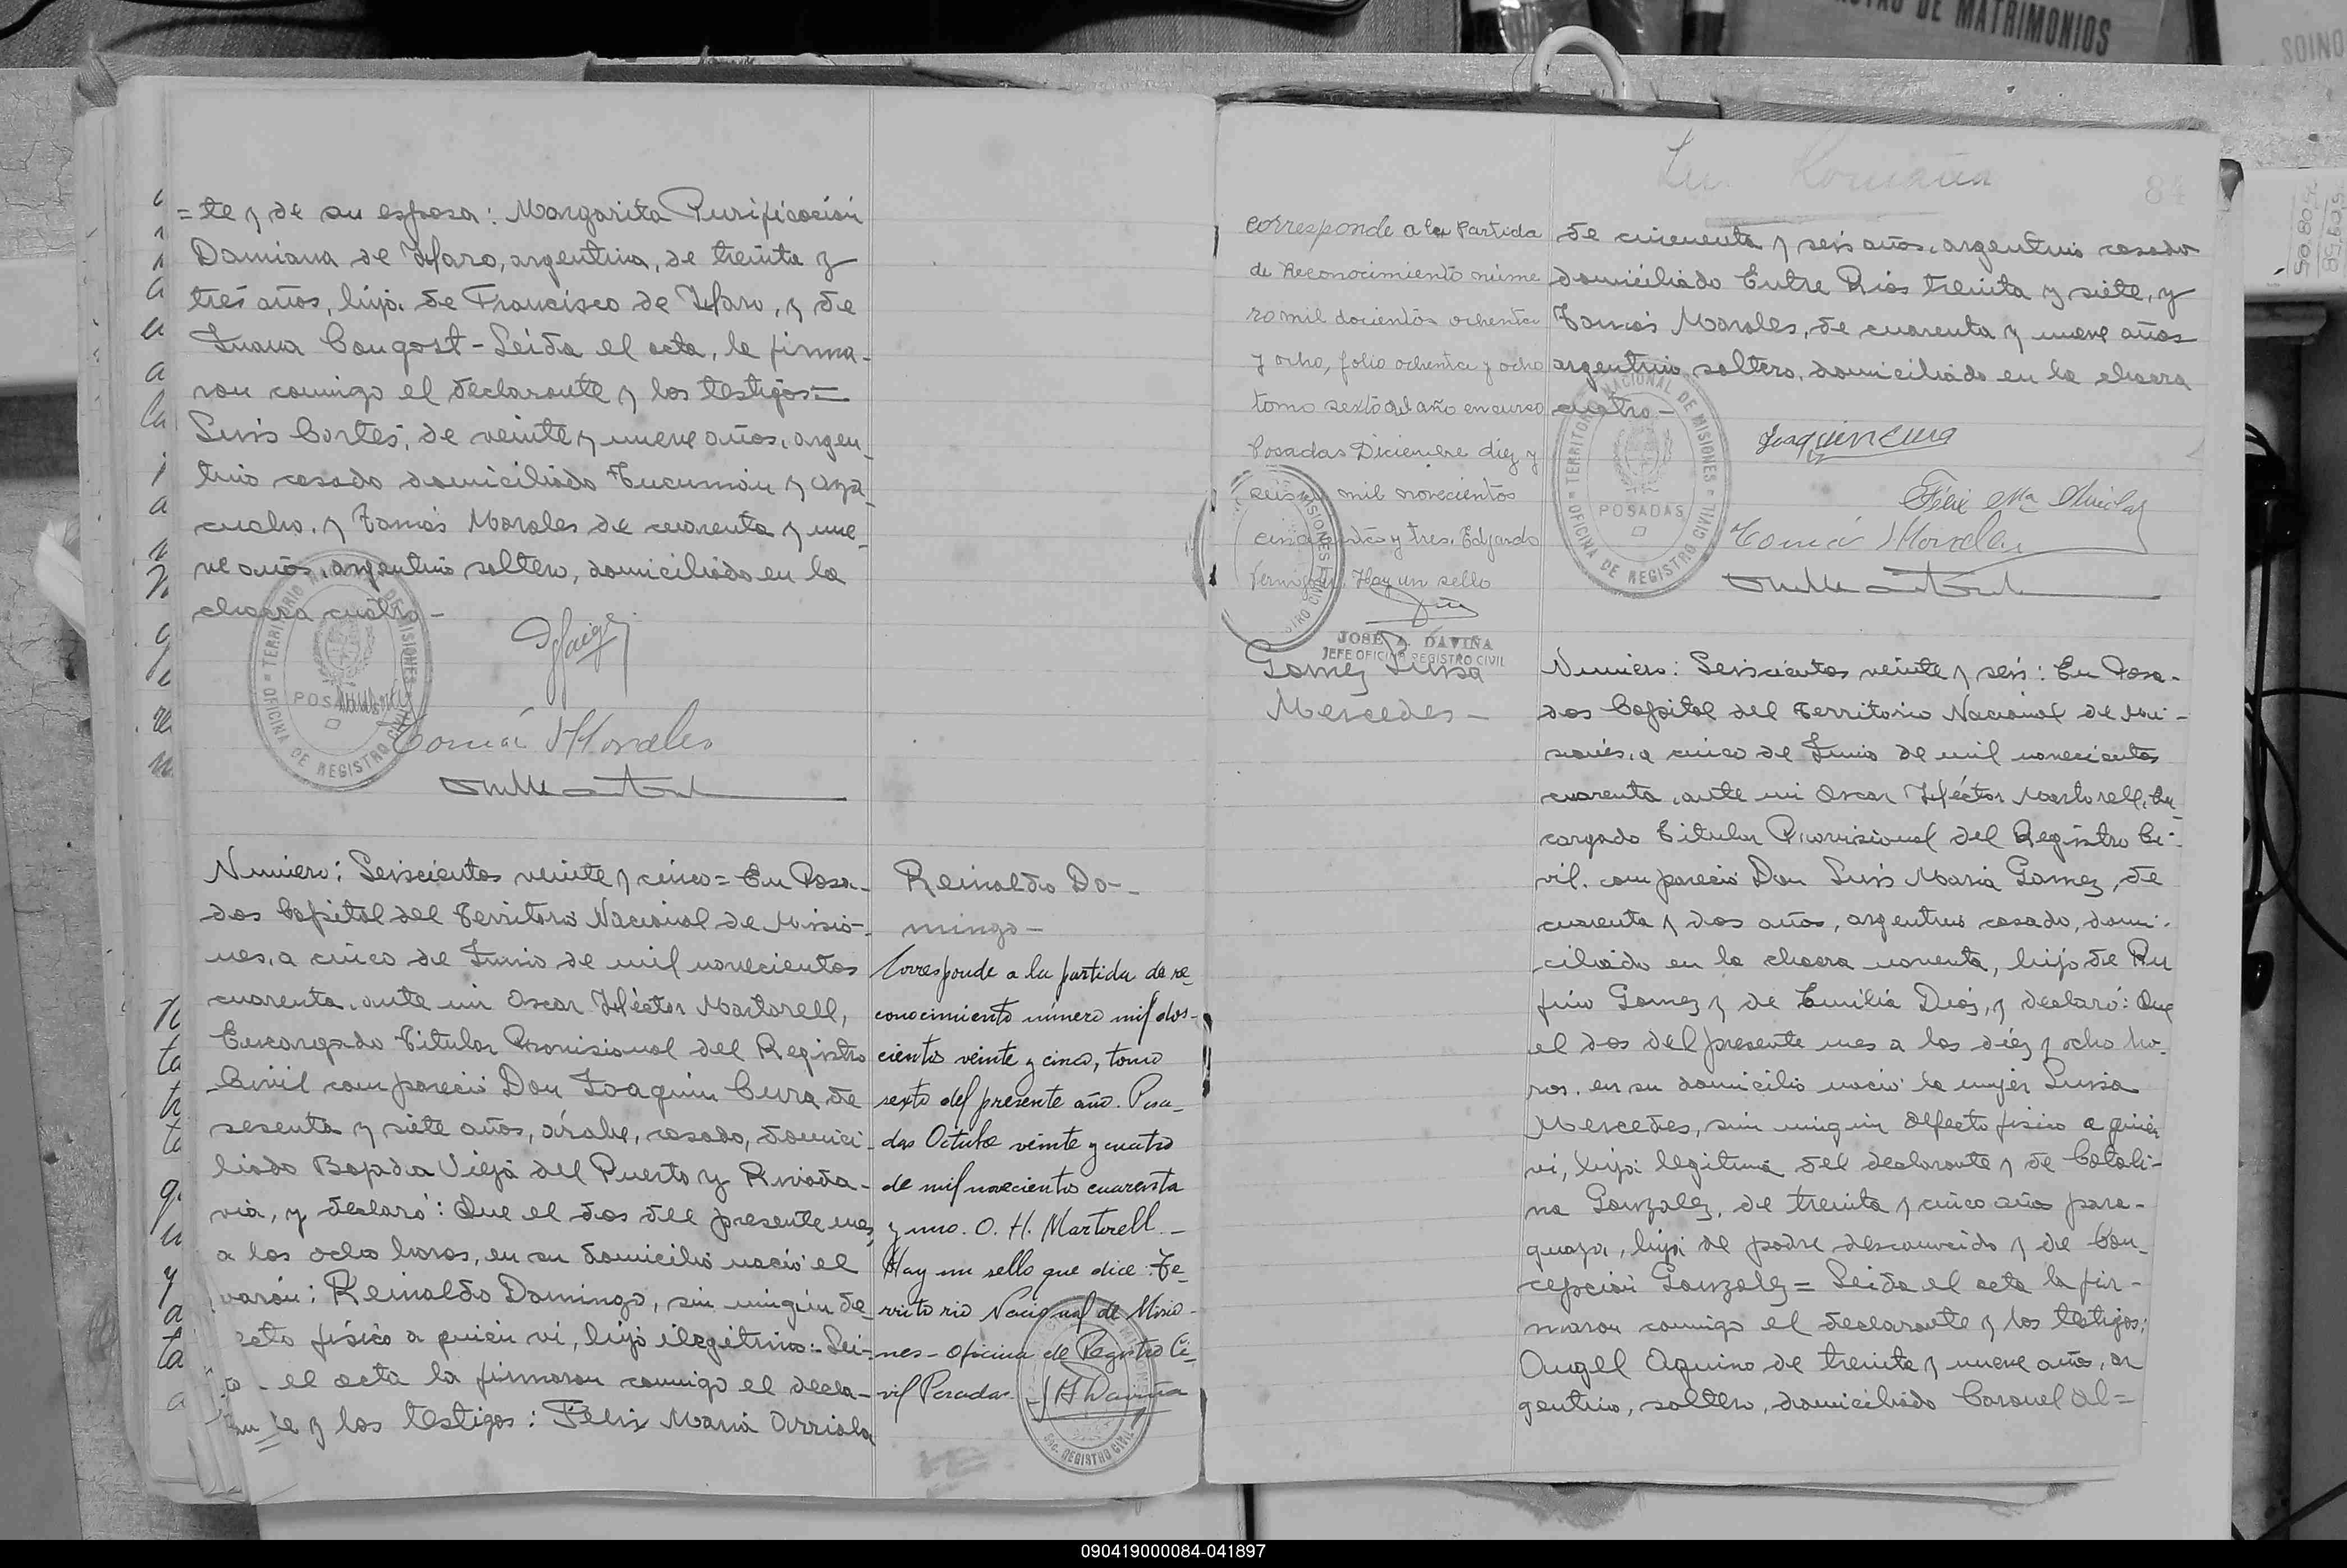 = te y de su esposa: Margarita Purificación
Damiana de Haro, argentina, de treinta y
tres años, hija de Francisco de Haro, y de
Juana Congost - Leida el acta, la firma-
ron conmigo el declarante y los testigos =
Luis Cortés, de veinte y nueve años, argen-
tino casado domiciliado Tucumán y Aya-
cucho, y Tomás Morales de cuarenta y nue-
ve años, argentino soltero, domiciliado en la
chacra cuatro -
TERRITORIO NACIONAL DE MISIONES
POSADAS
OFICINA DE REGISTRO CIVIL
Tomás Morales
Numero: Seiscientos veinte y cinco = En Posa-
das Capital del Territorio Nacional de Misio-
nes, a cinco de Junio de mil novecientos
cuarenta, ante mi Oscar Héctor Martorell,
Encargado Titular Provisional del Registro
Civil compareció Don Joaquin Cura de
sesenta y siete años, árabe, casado, domici-
liado Bajada Vieja del Puerto y Rivada-
via, y declaró: Que el dos del presente mes,
a las ocho horas, en su domicilio nació el
varón: Reinaldo Domingo, sin ningún de-
fecto físico a quien vi, hijo ilegitimo: Lei-
- el acta la firmaron conmigo el decla-
te y los testigos: Félix Maria Arriola
Reinaldo Do-
mingo -
Corresponde a la partida de re-
conocimiento número mil dos-
cientos veinte y cinco, tomo
sexto del presente año. Posa-
das Octubre veinte y cuatro
de mil novecientos cuarenta
y uno. O. H. Martorell. -
Hay un sello que dice: Te-
rritorio Nacional de Misio-
nes - Oficina de Registro Ci-
vil Posadas.
REGISTRO CIVIL
84
corresponde a la Partida
de Reconocimiento núme
ro mil docientos ochenta
y ocho, folio ochenta y ocho
tomo sexto del año en curso
Posadas Diciembre diez y
seis mil novecientos
cincuenta y tres. Edgardo
Hay un sello
JOSE A. DAVIÑA
JEFE OFICINA REGISTRO CIVIL
de cincuenta y seis años, argentino casado
domiciliado Entre Rios treinta y siete, y
Tomás Morales, de cuarenta y nueve años
argentino soltero, domiciliado en la chacra
cuatro -
TERRITORIO NACIONAL DE MISIONES
POSADAS
OFICINA DE REGISTRO CIVIL
Joaquin Cura
Félix Ma Arriola
Tomás Morales
Gomez Luisa
Mercedes -
Numero: Seiscientos veinte y seis: En Posa-
das Capital del Territorio Nacional de Mi-
siones, a cinco de Junio de mil novecientos
cuarenta, ante mi Oscar Héctor Martorell, En-
cargado Titular Provisional del Registro Ci-
vil, compareció Don Luis Maria Gomez, de
cuarenta y dos años, argentino casado, domi-
ciliado en la chacra noventa, hijo de Ru
fino Gomez y de Emilia Diós, y declaró: Que
el dos del presente mes a las diéz y ocho ho-
ras, en su domicilio nació la mujer Luisa
Mercedes, sin ningún defecto fisico a quien
vi, hija legitima del declarante y de Catali-
na Gonzalez, de treinta y cinco años para-
guaya, hija de padre desconocido y de Con-
cepción Gonzalez = Leida el acta la fir-
maron conmigo el declarante y los testigos:
Angel Aquino de treinta y nueve años, ar
gentino, soltero, domiciliado Coronel Al=
DE MATRIMONIOS
090419000084-041897